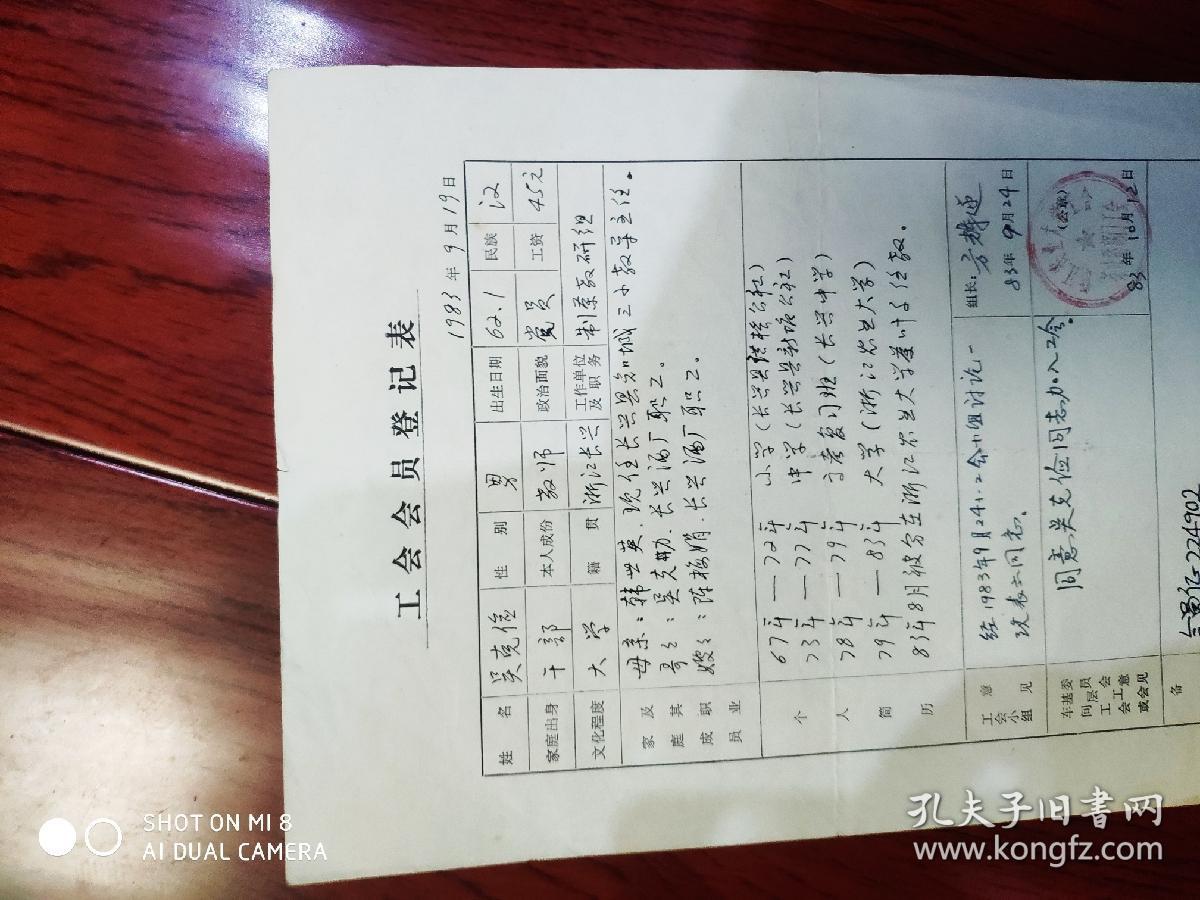 工会会员登记表
1983年9月19日
姓名 吴克俭 性别 男 出生日期 62.1 民族 汉
家庭出身 干部 本人成份 教师 政治面貌 党员 工资 45元
文化程度 大学 籍贯 浙江长兴 工作单位及职务 制茶教研组
家庭及其成员职业
母亲:韩世英.现任长兴县知城三小教导主任。
哥哥:吴克勤.长兴酒厂职工。
嫂嫂:陈梅娟.长兴酒厂职工。
个人简历
67年——72年 小学(长兴县洪桥公社)
73年——77年 中学(长兴县新塘公社)
78年——79年 高考复习班(长兴中学)
79年——83年 大学(浙江农业大学)
83年8月被分在浙江农业大学茶叶系任教。
工会小组意见
经1983年9月24日.2会小组讨论一
致表示同意。
组长:
83年9月24日
车间工会或基层工会委员会意见
同意吴克俭同志加入工会。
(公章)
83年10月12日
备
会员证224902
SHOT ON MI 8
AI DUAL CAMERA
孔夫子旧书网
www.kongfz.com